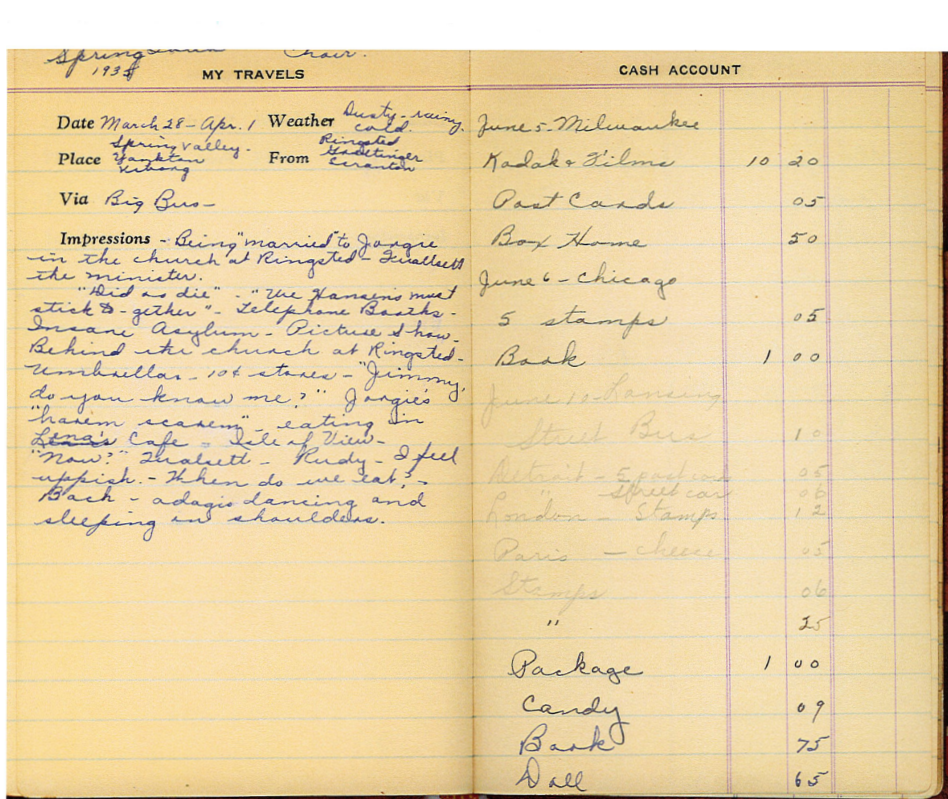 Choir.
1935
MY TRAVELS
Date March 28 - Apr. 1 Weather Dusty - rainy
cold.
Place Spring Valley.
Yankton
From Ringsted
Graettinger
Via Big Bus -
Impressions - Being "married" to Jorgie
in the church at Ringsted -
the minister.
"Did so die" - "We Hansens must
stick to-gether" - Telephone Booths -
Insane Asylum - Picture Show -
Behind the church at Ringsted -
Umbrellas - 10¢ stores - "Jimmy,
do you know me?" Jorgie's
"harem scarem" - eating in
Lena's Cafe - Isle of View -
"Now?" - Rudy - I feel
uppish. - When do we eat? -
Bach - adagio dancing and
sleeping on shoulders.
CASH ACCOUNT
June 5 - Milwaukee
Kodak & Films 10 20
Post Cards 05
Box Home 50
June 6 - Chicago
5 stamps 05
Book 1 00
June 10 - Lansing
Street Bus 10
Detroit - 5 postcards 05
" Street car 06
London - Stamps 12
Paris - cheese 05
Stamps 06
" 25
Package 1 00
Candy 09
Book 75
Doll 65